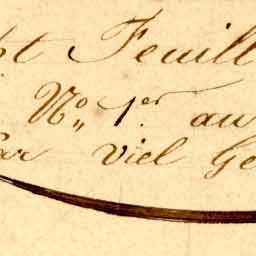 Feuill
No. 1er. au
Par Viel Ge